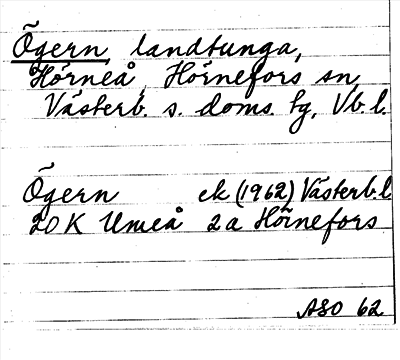 Ögern, landtunga,
Hörneå, Hörnefors sn,
Västerb. s. doms. tg, Vb. l.
Ögern ek (1962) Västerb. l
20 K Umeå 2a Hörnefors
ASO 62